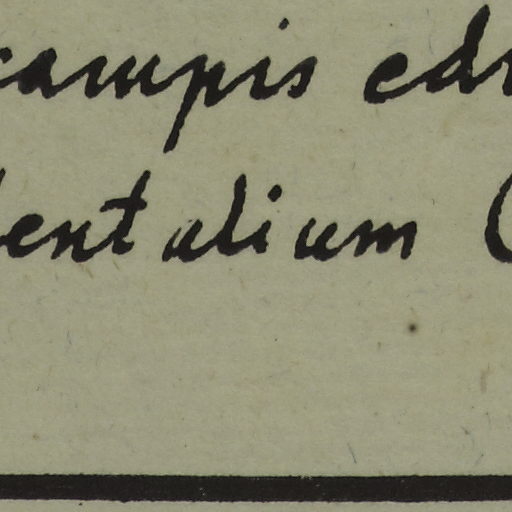 campis edi
entalium (